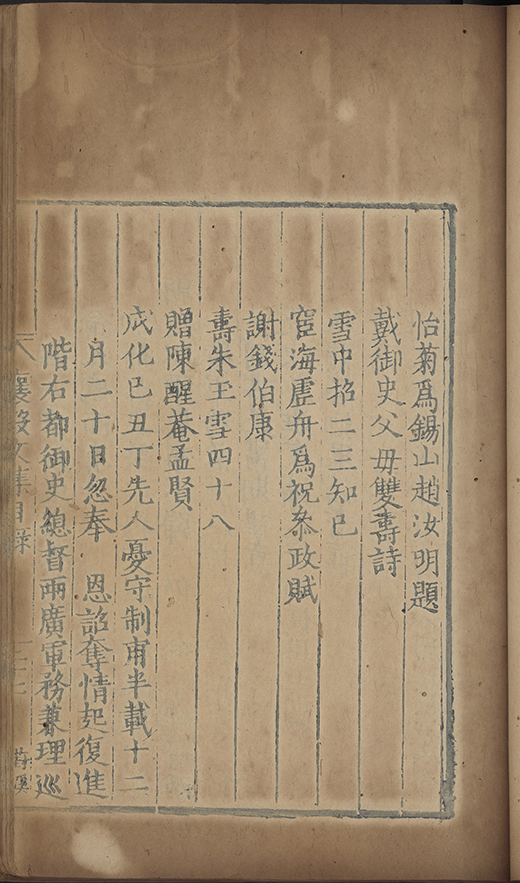 怡菊爲錫山趙汝明題
戴御史父母雙壽詩
雪中招二三知已
宦海虛舟爲祝叅政賦
謝錢伯康
壽朱玉雪四十八
贈陳醒菴孟賢
成化巳丑丁先人憂守制甫半載十二
月二十日忽奉 恩詔奪情起復進
階右都御史總督兩廣軍務兼理巡
襄毅文集目錄